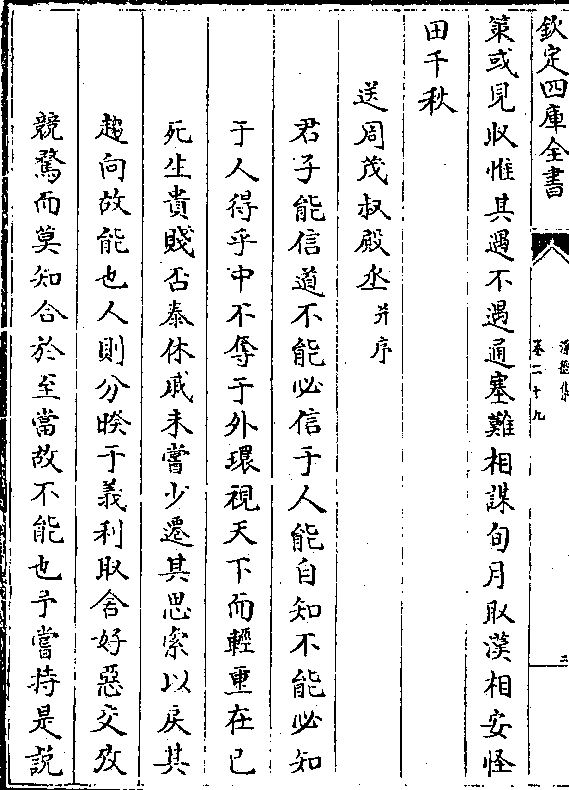 欽定四庫全書
卷二十九
三
策或見收惟其遇不遇通塞難相謀旬月取漢相安怪
田千秋
送周茂叔殿丞并序
君子能信道不能必信于人能自知不能必知
于人得乎中不辱于外環視天下而輕重在已
死生貴賤否泰休戚未嘗少遷其思索以戾其
趨向故能也人則分暌于義利取舍好惡交攻
競騖而莫知合於至當故不能也予嘗持是説